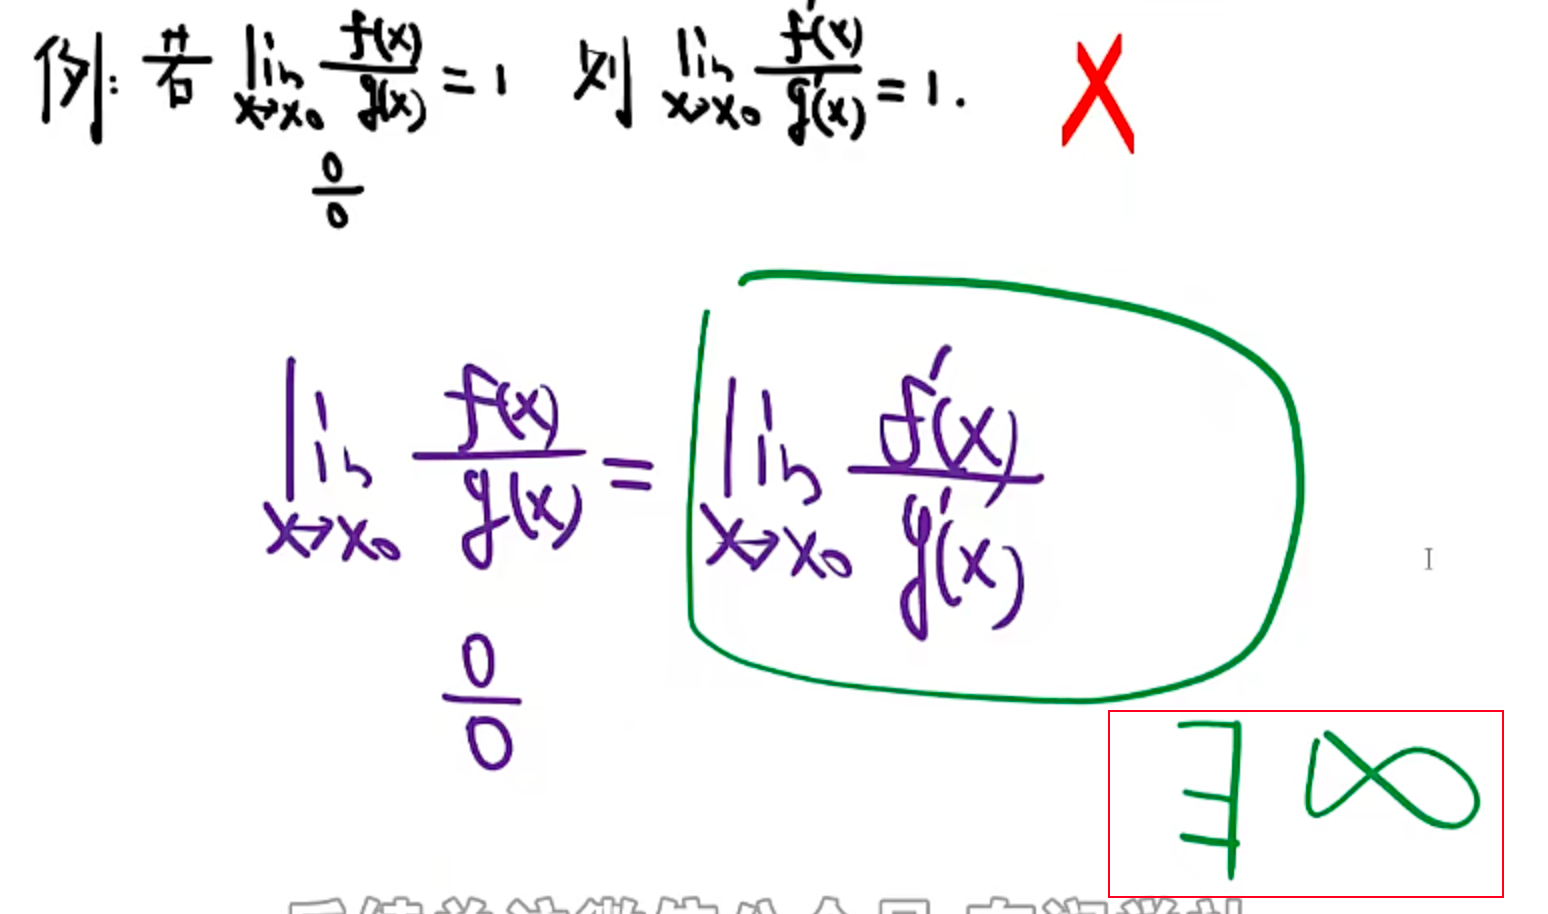 例: 若 lim x→x₀ f(x)/g(x) = 1 则 lim x→x₀ f'(x)/g'(x) = 1. X
0/0
lim x→x₀ f(x)/g(x) = lim x→x₀ f'(x)/g'(x)
0/0
∃ ∞